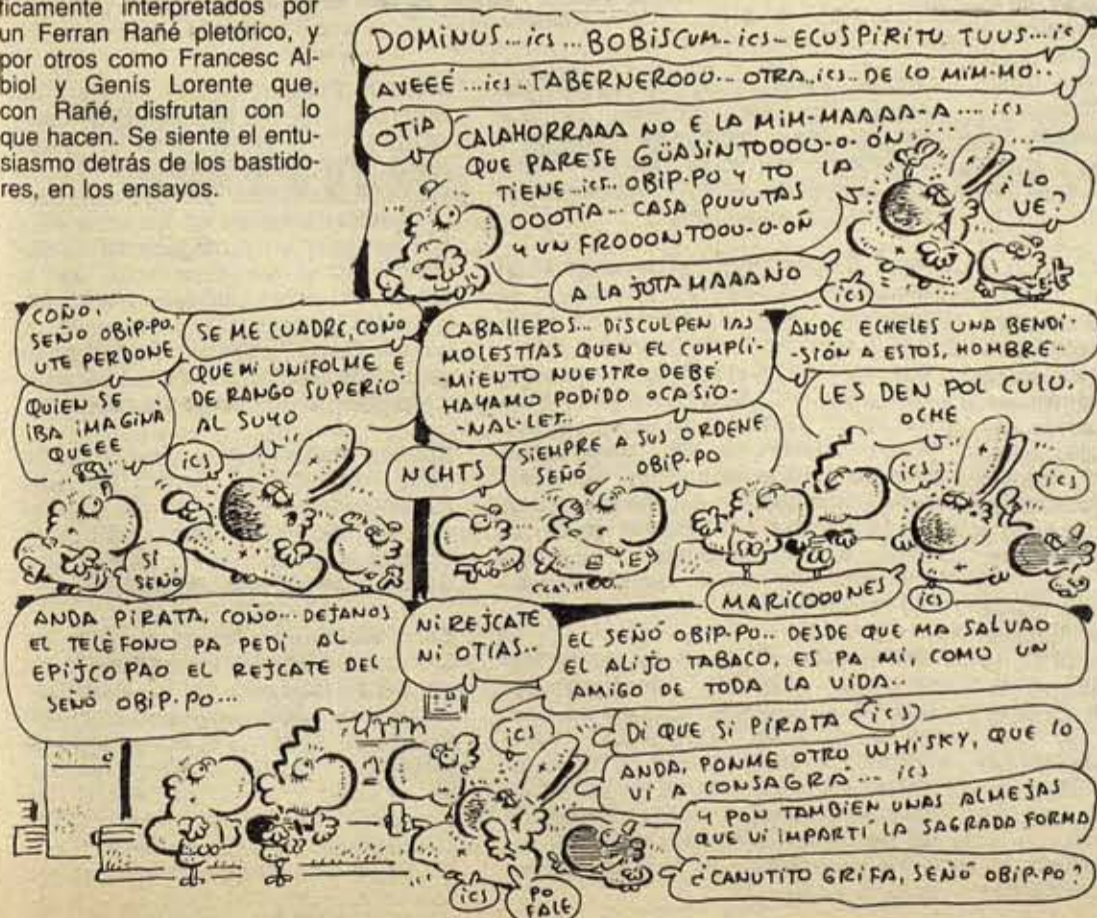 ficamente interpretados por
un Ferran Rañé pletórico, y
por otros como Francesc Al-
biol y Genís Lorente que,
con Rañé, disfrutan con lo
que hacen. Se siente el entu-
siasmo detrás de los bastido-
res, en los ensayos.
DOMINUS...ics...BOBISCUM..ics..ECUSPIRITU TUUS...ic
AVEEÉ...ics..TABERNEROOO...OTRA..ics..DE LO MIM-MO..
OTIA
CALAHORRAAA NO E LA MIM-MAAAA-A....ics
QUE PARESE GÜASINTOOOU-O-ÓN
TIENE..ics..OBIP-PO Y TO LA
OOOTIA...CASA PUUUTAS
Y UN FROOONTOOU-O-OÑ
A LA JOTA MAAAÑO
ics
¿LO
VE?
COÑO,
SEÑO OBIP-PO.
UTE PERDONE
QUIEN SE
IBA IMAGINÁ
QUEEE
SI
SEÑÓ
SE ME CUADRE, COÑO
QUE MI UNIFOLME E
DE RANGO SUPERIÓ
AL SUYO
ics
CABALLEROS... DISCULPEN LAS
MOLESTIAS QUEN EL CUMPLI-
-MIENTO NUESTRO DEBÉ
HAYAMO PODIDO OCASIO-
-NAL-LES...
NCHTS
SIEMPRE A SUS ORDENE
SEÑÓ OBIP-PO
ANDE ECHELES UNA BENDI-
-SIÓN A ESTOS, HOMBRE..
LES DEN POL CULO.
OCHE
ics
ics
MARICOOONES
ics
ANDA PIRATA, COÑO... DEJANOS
EL TELÉFONO PA PEDÍ AL
EPIJCOPAO EL REJCATE DEL
SEÑÓ OBIP-PO...
NI REJCATE
NI OTIAS..
EL SEÑÓ OBIP-PO.. DESDE QUE MA SALVAO
EL ALIJO TABACO, ES PA MI, COMO UN
AMIGO DE TODA LA VIDA..
ics
DI QUE SI PIRATA ics
ANDA, PONME OTRO WHISKY, QUE LO
VI A CONSAGRÁ... ics
Y PON TAMBIEN UNAS ALMEJAS
QUE VI IMPARTÍ LA SAGRADA FORMA
¿CANUTITO GRIFA, SEÑÓ OBIP-PO?
ics
PO
FALE